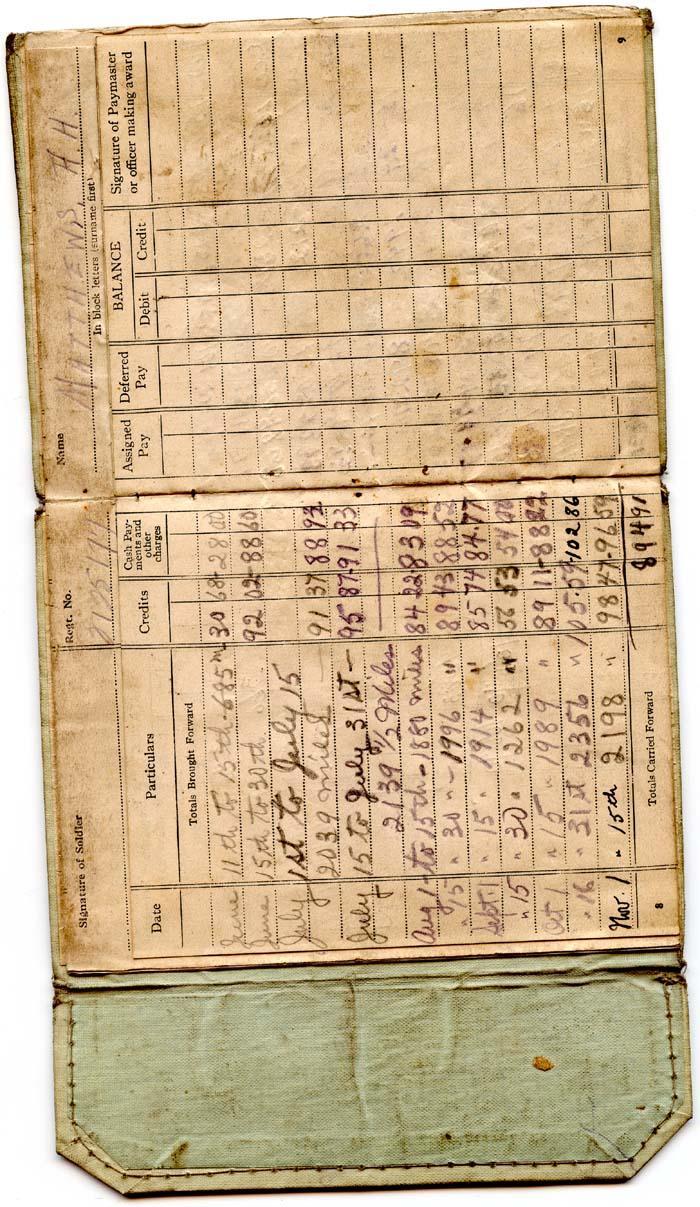 Signature of Soldier
Regt. No. 2125144
Name MATTHEWS, H. H.
In block letters (surname first)
Date Particulars Credits Cash Payments and other charges Assigned Pay Deferred Pay BALANCE Debit Credit Signature of Paymaster or officer making award
Totals Brought Forward
June 11th to 15th - 685 m 30 68 - 28 00
June 15th to 30th 92 02 - 88 60
July 1st to July 15
2039 miles - 91 37 88 92
July 15 to July 31st - 95 87 - 91 33
2139 1/2 Miles
Aug 1st to 15th - 1880 miles 84 22 83 09
" 15 " 30 " - 1996 " 89 43 88 52
Sept 1 " 15 " 1914 " 85 74 84 77
" 15 " 30 " 1262 " 56 53 54
Oct 1 " 15 " 1989 " 89 11 - 88 22
" 16 " 31st 2356 " 105.54 102 86
Nov. 1 " 15th 2198 " 98 47 - 96 59
894 91
Totals Carried Forward
8
9